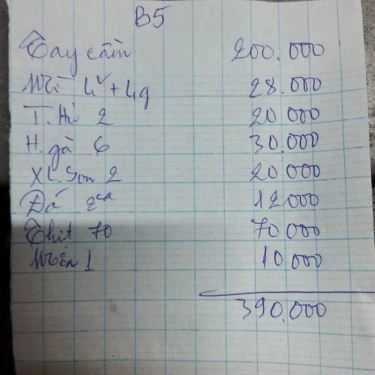 B5
Tay cầm 200.000
Mì 4v + 4g 28.000
T. Hi 2 20 000
H. gà 6 30.000
XL Son 2 20000
Đá 2ca 12000
Thịt 70 70000
Miến 1 10,000
390.000